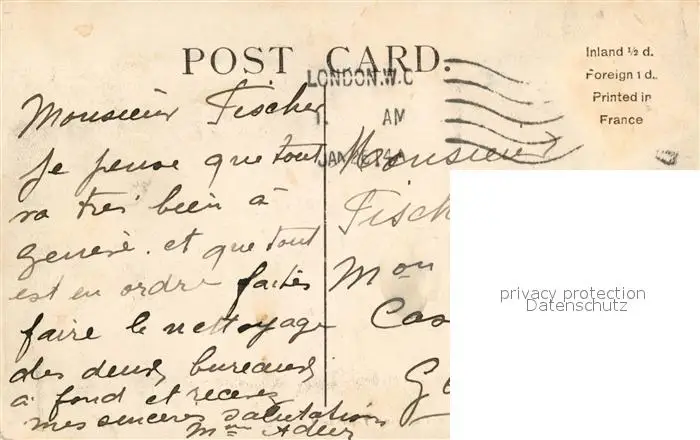 POST CARD.
Inland ½ d.
Foreign 1 d.
Printed in
France
LONDON.W.C
AM
JAN
Monsieur Fischer
je pense que tout
va très bien à
Genève. et que tout
est en ordre faites
faire le nettoyage
des deux bureaux
à fond et recevez
mes sincères salutations
Mme Adler
Monsieur
Fisch
Mon
Cas
Ge
privacy protection
Datenschutz